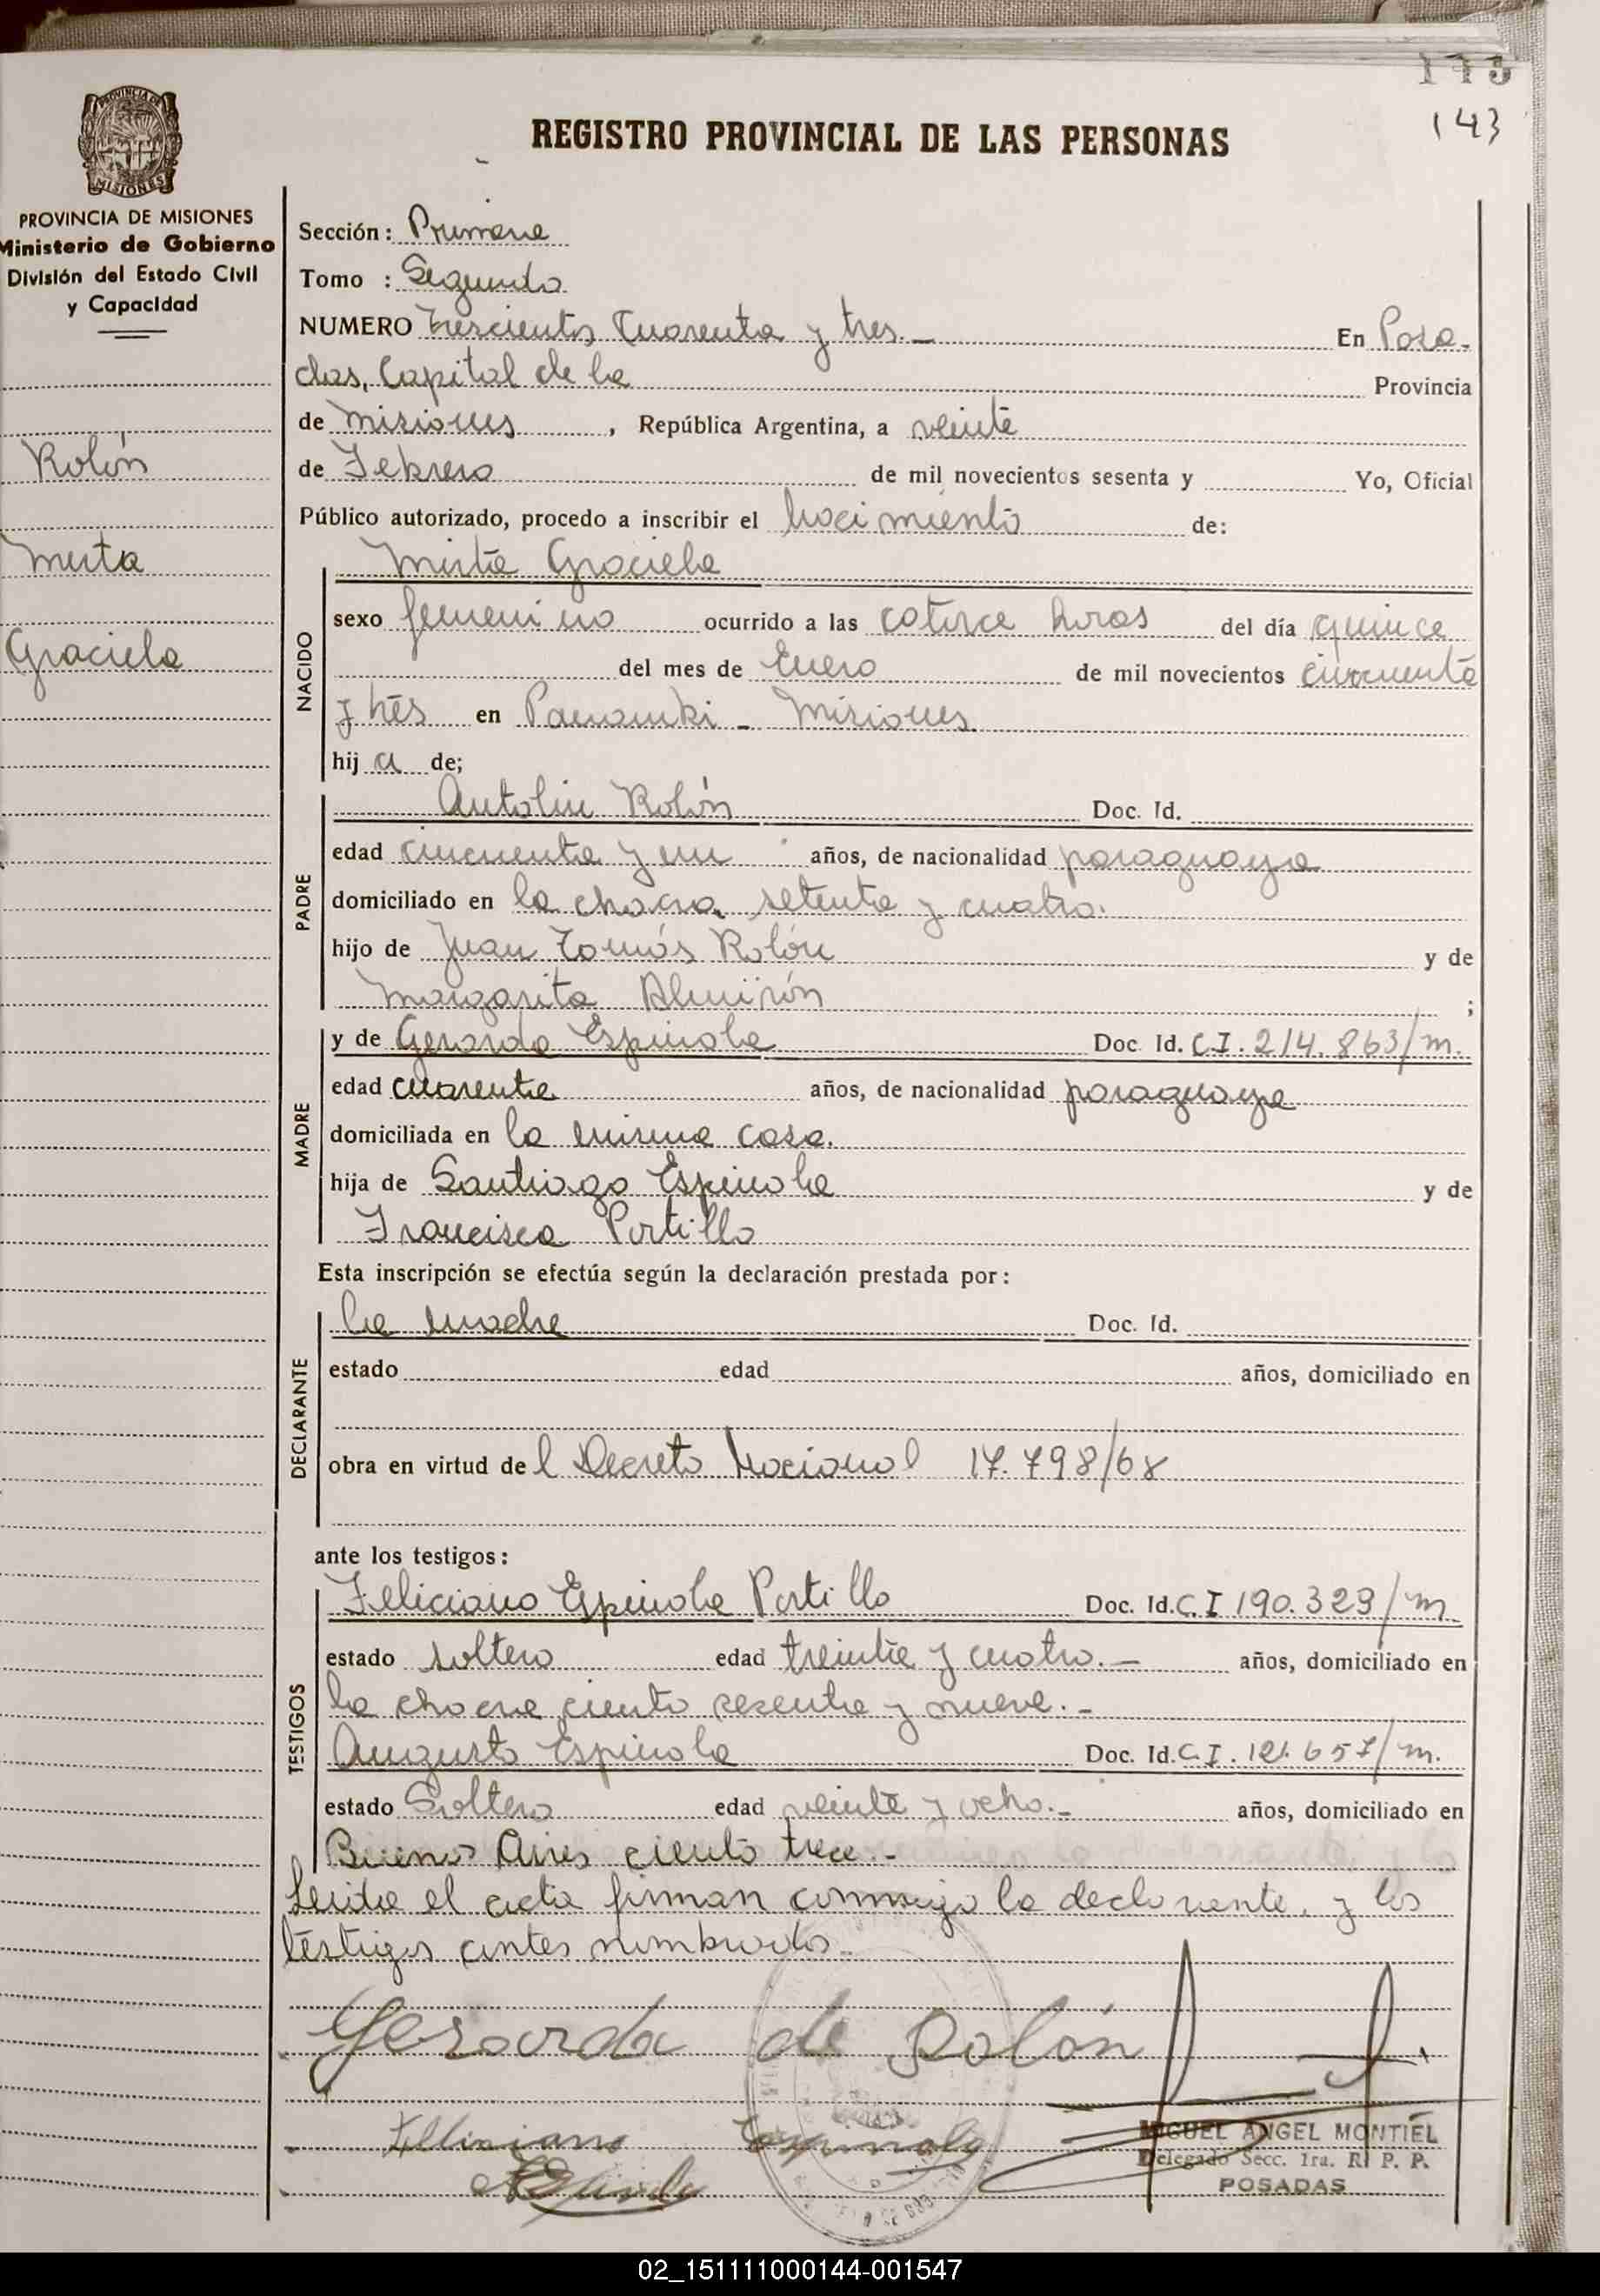 143
REGISTRO PROVINCIAL DE LAS PERSONAS
PROVINCIA DE MISIONES
Ministerio de Gobierno
División del Estado Civil
y Capacidad
Rolón
Mirta
Graciela
Sección: Primera
Tomo : Segundo
NUMERO Trescientos Cuarenta y tres.- En Posa-
das, Capital de la Provincia
de Misiones, República Argentina, a veinte
de Febrero de mil novecientos sesenta y Yo, Oficial
Público autorizado, procedo a inscribir el nacimiento de:
NACIDO
Mirta Graciela
sexo femenino ocurrido a las catorce horas del día quince
del mes de Enero de mil novecientos cincuenta
y tres en Panambi - Misiones.
hija de;
PADRE
Antolin Rolón Doc. Id.
edad cincuenta y un años, de nacionalidad paraguaya
domiciliado en la chacra setenta y cuatro.
hijo de Juan Tomás Rolón y de
Margarita Almirón ;
MADRE
y de Gerarda Espinola Doc. Id. C.I. 214.863/M.
edad cuarenta años, de nacionalidad paraguaya
domiciliada en la misma casa.
hija de Santiago Espinola y de
Francisca Portillo
Esta inscripción se efectúa según la declaración prestada por:
DECLARANTE
la madre Doc. Id.
estado edad años, domiciliado en
obra en virtud del Decreto Nacional 17.798/68
ante los testigos:
TESTIGOS
Feliciano Espinola Portillo Doc. Id. C.I 190.329/M.
estado soltero edad treinta y cuatro.- años, domiciliado en
la chacra ciento sesenta y nueve.-
Augusto Espinola Doc. Id. C.I. 121.657/M.
estado Soltero edad veinte y ocho.- años, domiciliado en
Buenos Aires ciento trece.-
Leida el acta firman conmigo la declarante, y los
testigos antes nombrados.-
Gerarda de Rolón
Feliciano Espinola
MIGUEL ANGEL MONTIEL
Delegado Secc. 1ra. R. P. P.
POSADAS
02_151111000144-001547